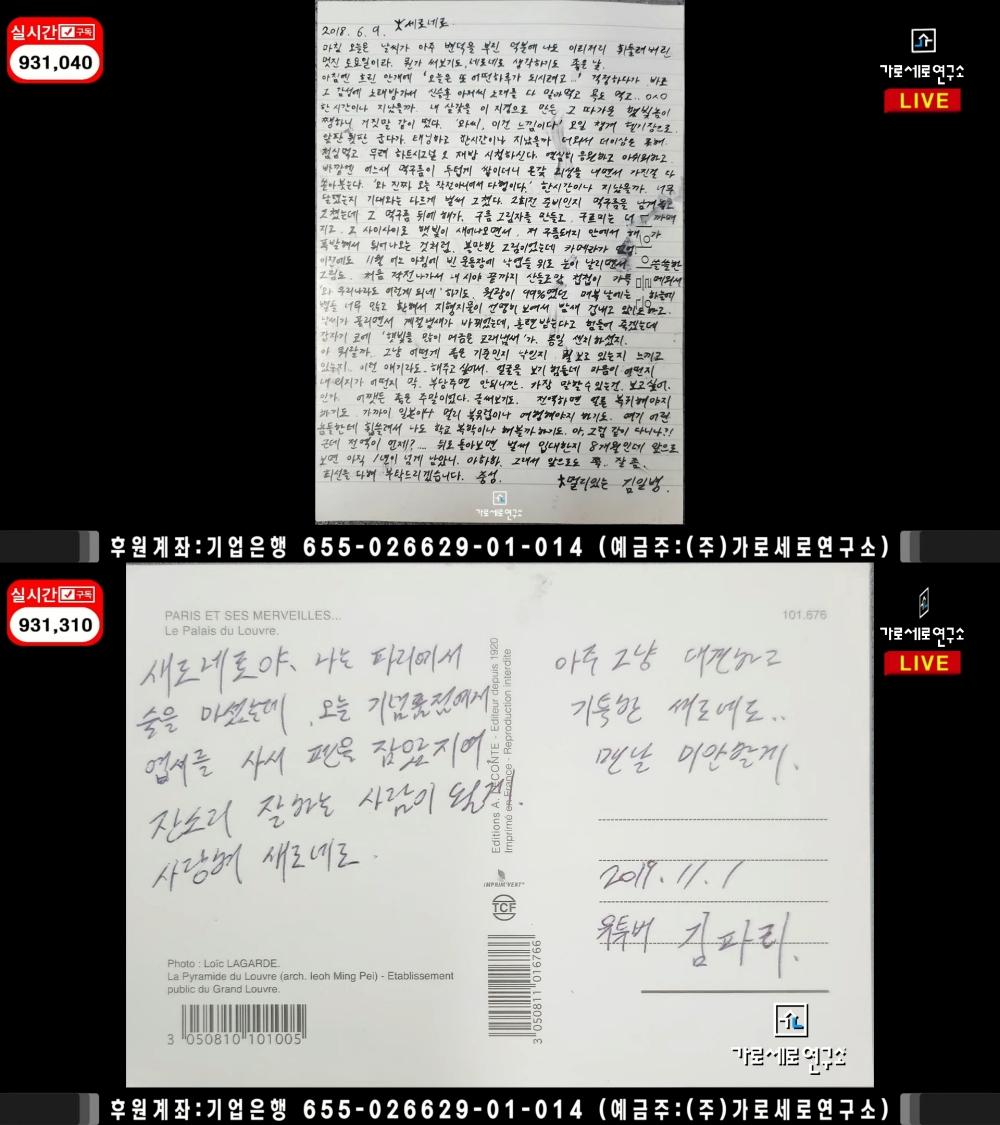 실시간 구독
931,040
가로세로연구소
LIVE
2018. 6. 9. 새로네로.
마침 오늘은 날씨가 아주 변덕을 부린 덕분에 나도 이리저리 휘둘려버린
멋진 토요일이라. 뭔가 써보기도, 네로네로 생각하기도 좋은 날.
아침엔 흐린 안개에 '오늘은 또 어떤하루가 되시려고..' 걱정하다가 바로
그 감성에 노래방가서 신승훈 아저씨 노래를 다 잊어먹고 목도 먹고.. ㅇㅅㅇ
한시간이나 지났을까. 내 살갗을 이 지경으로 만든 그 따가운 햇빛놈이
쨍하니 거짓말 같이 떴다. '와씨, 이건 느낌이다' 오일 챙겨 연기장으로.
앞판 뒷판 굽다가. 태닝하고 한시간이나 지났을까 더워서 더이상은 못해.
점심먹고 무려 하트시그널 오 재방 시청하신다. 열심히 응원하고 아쉬워하고.
바깥엔 어느새 먹구름이 두텁게 쌓이더니 온갖 괴성을 내면서 가진걸 다
쏟아붓는다. '와 진짜 오늘 작전아니여서 다행이다.' 한시간이나 지났을까. 너무
달랐는지 기대와는 다르게 벌써 그쳤다. 2회전 준비인지 먹구름을 남겨놓고
그쳤는데 그 먹구름 뒤에 해가, 구름 그림자를 만들고, 구르미는 더 까매
지고. 그 사이사이로 햇빛이 새어나오면서, 저 구름돼지 안에서 해가
폭발해서 튀어나오는 것처럼. 볼만한 그림이었는데 카메라가 없었
이전에도 11월 어느 아침에 빈 운동장에 낙엽들 위로 눈이 날리면서 쓸쓸한
그림도. 처음 작전나가서 내 시야 끝까지 산들로만 첩첩이 가득 메워서
'와 우리나라도 이렇게 되네' 하기도. 월광이 99%였던 며칠 날에는 하늘에
별들 너무 많고 환해서 지형지물이 선명히 보여서 밤새 감시하고 있기도하고.
날씨가 풀리면서 계절냄새가 바뀌었는데, 훈련받는다고 힘들어 죽겠는데
갑자기 코에 '햇빛을 많이 머금은 모래냄새'가. 종일 센치하였지.
아 뭐랄까.. 그냥 어떤게 좋은 기준인지 낙인지, 뭘 보고 있는지 느끼고
있는지.. 이런 얘기라도 해주고 싶어서. 얼굴을 보기 힘든데 마음이 어떤지
내 의지가 어떤지 막. 부담주면 안되니깐. 가장 말할 수 있는건. 보고싶어.
인가. 어쨌든 좋은 주말이었다. 글써보기도. 전역하면 얼른 복귀해야지
하기도, 가까이 일본이나 멀리 북유럽이나 여행해야지 하기도. 여기 어린
놈들한테 휩쓸려서 나도 학교 복학이나 해볼까하기도. 아, 그럼 같이 다니나?!
근데 전역이 언제?.... 뒤로 돌아보면 벌써 입대한지 8개월인데 앞으로
보면 아직 1년이 넘게 남았니. 아하하. 그래서 앞으로도 쭉. 잘 좀.
최선을 다해 부탁드리겠습니다. 충성.
멀리있는 김일병.
가로세로연구소
후원계좌:기업은행 655-026629-01-014 (예금주:(주)가로세로연구소)
실시간 구독
931,310
가로세로연구소
LIVE
PARIS ET SES MERVEILLES...
Le Palais du Louvre.
101.676
새로네로야, 나는 파리에서
술을 마셨는데, 오늘 기념품점에서
엽서를 사서 펜을 잡았지여.
잔소리 잘하는 사람이 될게!.
사랑해 새로네로.
Editions A. LECONTE - Editeur depuis 1920
Imprimé en France - Reproduction interdite
아주 그냥 대견하고
기특한 새로네로..
맨날 미안할게.
2019. 11. 1
유투버 김파리.
IMPRIM'VERT
TCF
Photo : Loïc LAGARDE.
La Pyramide du Louvre (arch. Ieoh Ming Pei) - Etablissement
public du Grand Louvre.
3 050810 101005
3 050811 016766
가로세로연구소
후원계좌:기업은행 655-026629-01-014 (예금주:(주)가로세로연구소)